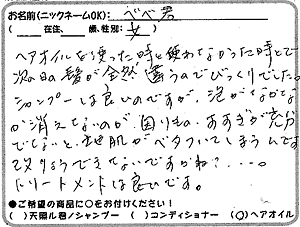 お名前(ニックネームOK): べべ君
( 在住、 歳、性別: 女 )
ヘアオイルを使った時と使わなかった時とで
次の日の髪が全然違うのでびっくりでした。
シャンプーは良いのですが、泡がなかなか
が消えないのが困りもの。すすぎが充分
でないと、地肌がベタついてしまうんです
改りょうできないですかね?....。
トリートメントは良いです。
●ご希望の商品に○をお付けください!
( )天然ル君ノシャンプー ( )コンディショナー (○)ヘアオイル